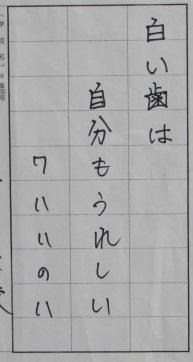 白い歯は
自分もうれしい
ワハハのハ